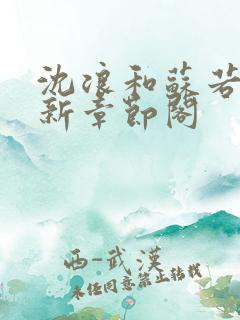 沈浪和蘇若
新章節閣
西-武漢
未經同意禁止轉載